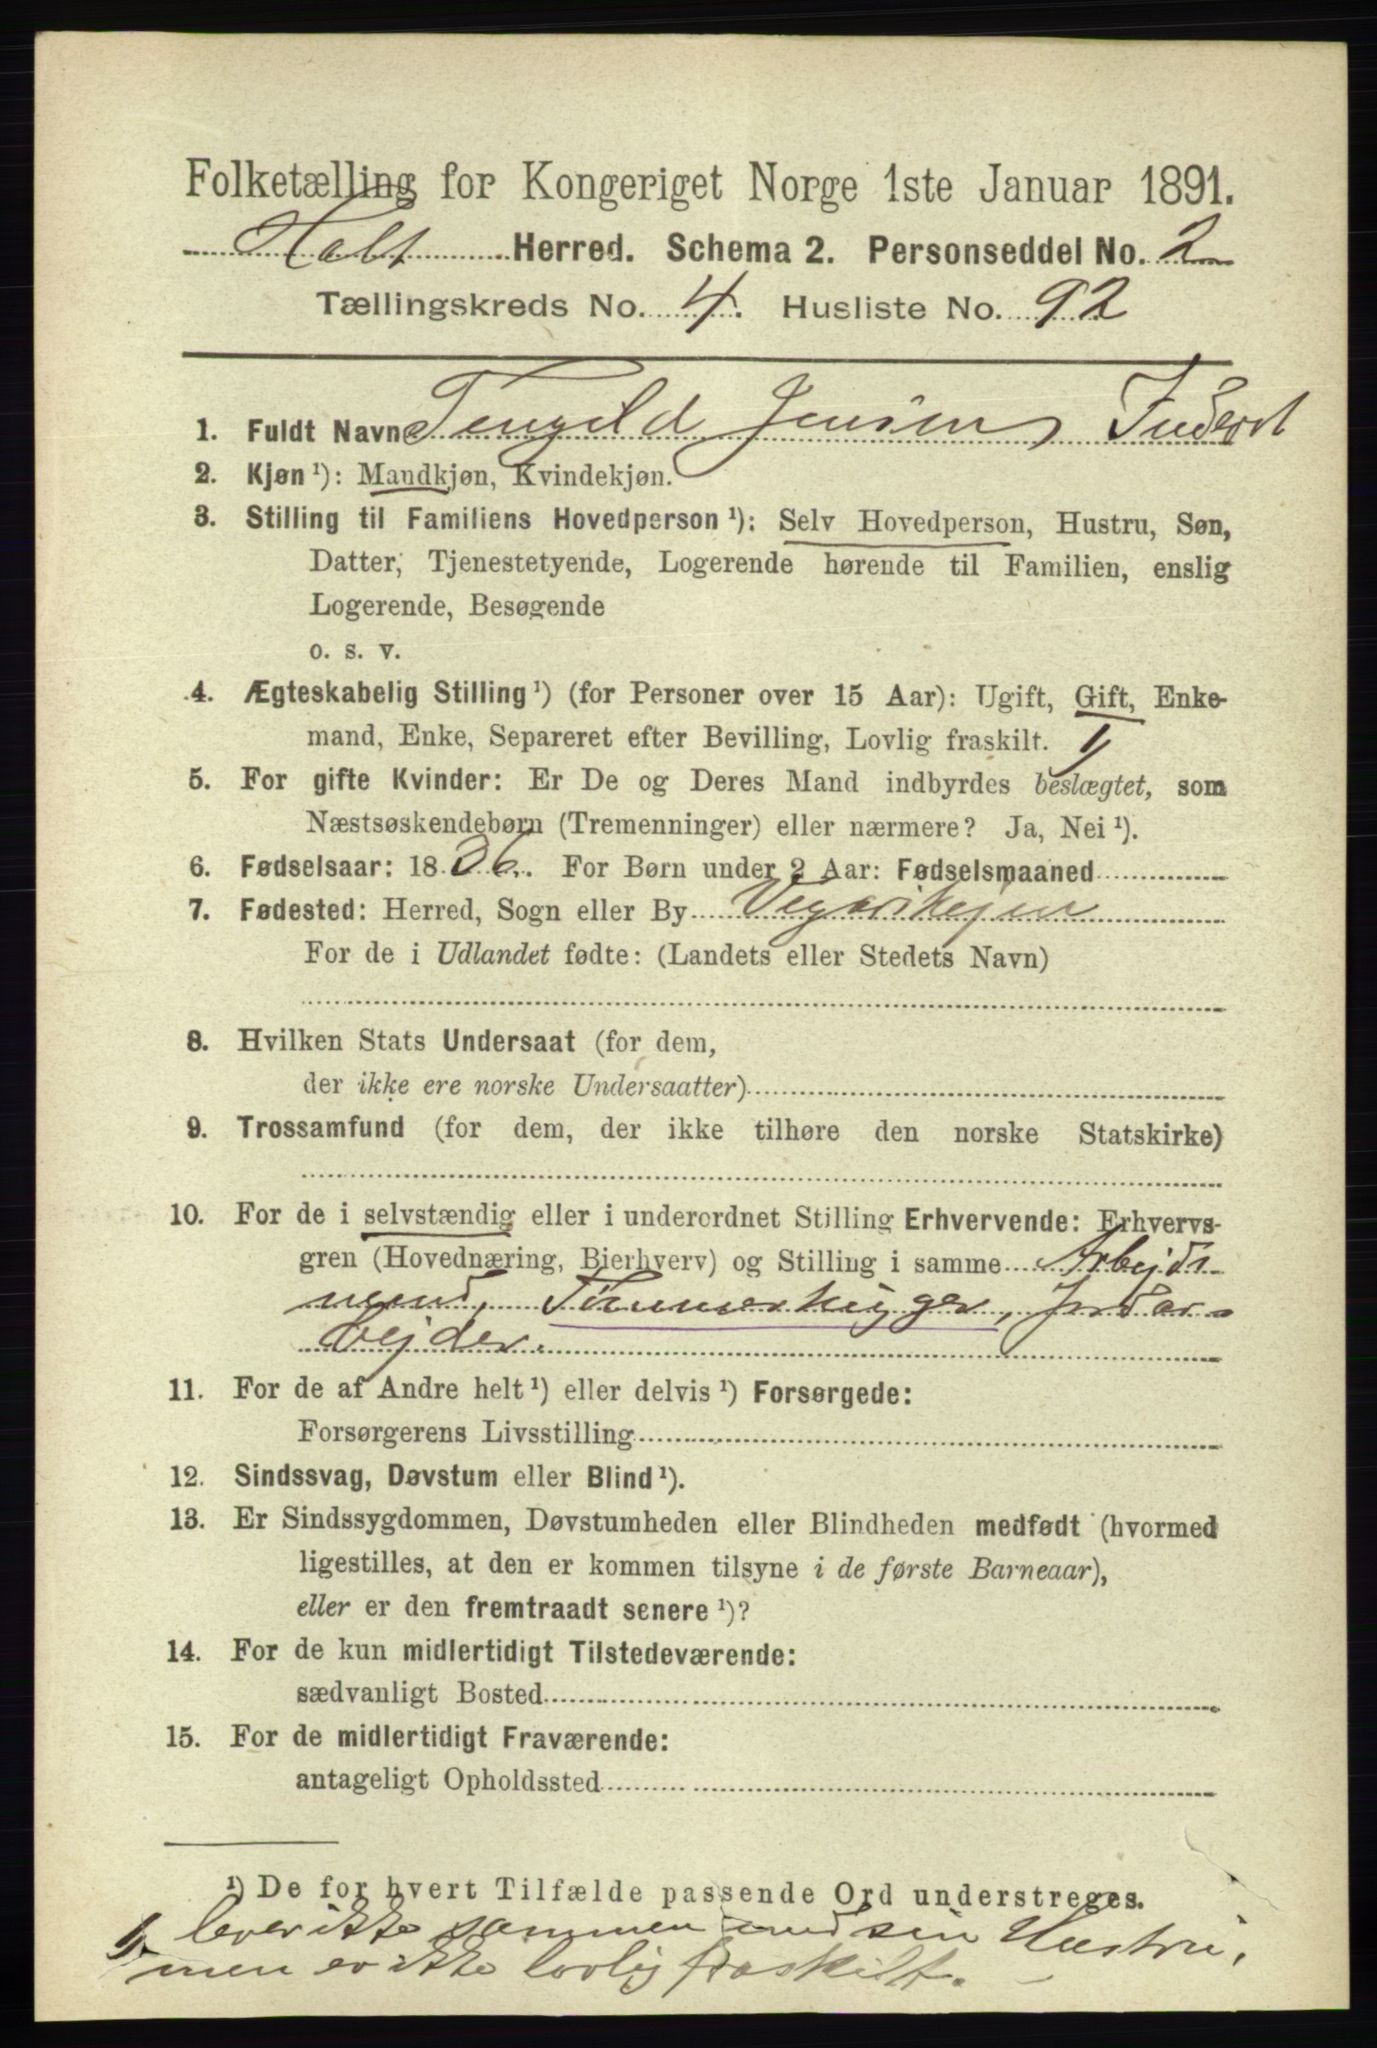 Folketælling for Kongeriget Norge 1ste Januar 1891.
Holt Herred. Schema 2. Personseddel No. 2
Tællingskreds No. 4. Husliste No. 92
1. Fuldt Navn Jensen
2. Kjøn ¹): Mandkjøn, Kvindekjøn.
3. Stilling til Familiens Hovedperson ¹): Selv Hovedperson, Hustru, Søn,
Datter, Tjenestetyende, Logerende hørende til Familien, enslig
Logerende, Besøgende
o. s. v.
4. Ægteskabelig Stilling ¹) (for Personer over 15 Aar): Ugift, Gift, Enke-
mand, Enke, Separeret efter Bevilling, Lovlig fraskilt. 1)
5. For gifte Kvinder: Er De og Deres Mand indbyrdes beslægtet, som
Næstsøskendebørn (Tremenninger) eller nærmere? Ja, Nei ¹).
6. Fødselsaar: 1836. For Børn under 2 Aar: Fødselsmaaned
7. Fødested: Herred, Sogn eller By
For de i Udlandet fødte: (Landets eller Stedets Navn)
8. Hvilken Stats Undersaat (for dem,
der ikke ere norske Undersaatter)
9. Trossamfund (for dem, der ikke tilhøre den norske Statskirke)
10. For de i selvstændig eller i underordnet Stilling Erhvervende: Erhvervs-
gren (Hovednæring, Bierhverv) og Stilling i samme Arbejds-
mand, Tømmerhugger, Jordar-
bejder.
11. For de af Andre helt ¹) eller delvis ¹) Forsørgede:
Forsørgerens Livsstilling
12. Sindssvag, Døvstum eller Blind ¹).
13. Er Sindssygdommen, Døvstumheden eller Blindheden medfødt (hvormed
ligestilles, at den er kommen tilsyne i de første Barneaar),
eller er den fremtraadt senere ¹)?
14. For de kun midlertidigt Tilstedeværende:
sædvanligt Bosted
15. For de midlertidigt Fraværende:
antageligt Opholdssted
¹) De for hvert Tilfælde passende Ord understreges.
1) lever ikke sammen med sin Hustru,
men er ikke lovlig fraskilt.